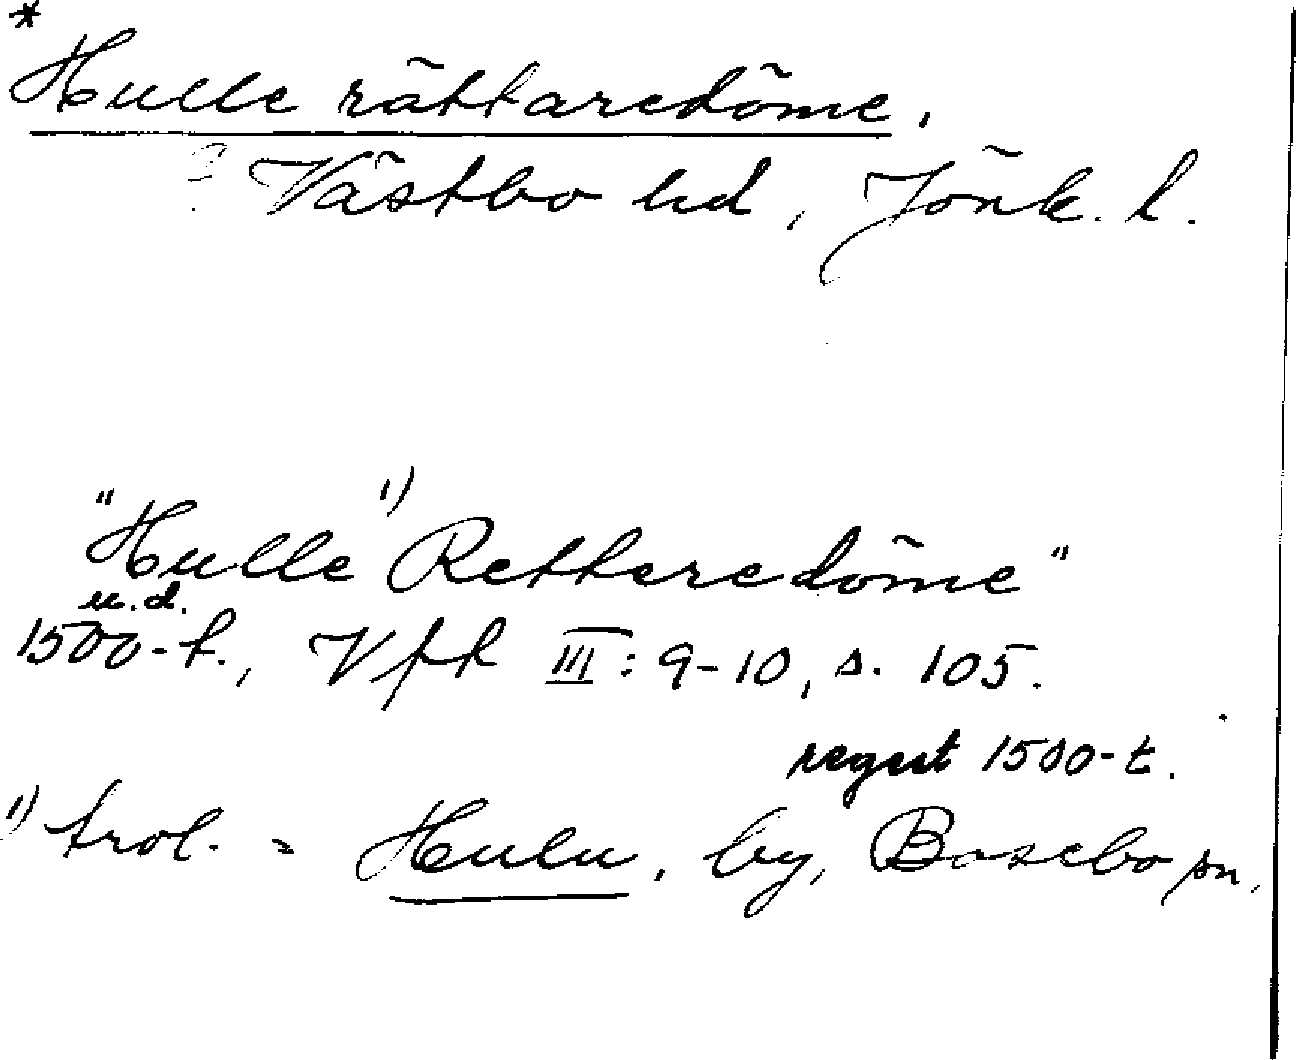 *
Hulle rättaredöme.
? Västbo hd, Jönk. l.
"Hulle 1) Retteredöme"
u.d.
1500-t., Vfrk III: 9-10, s. 105.
regest 1500-t.
1) trol. = Hulu, by, Bosebo sn.